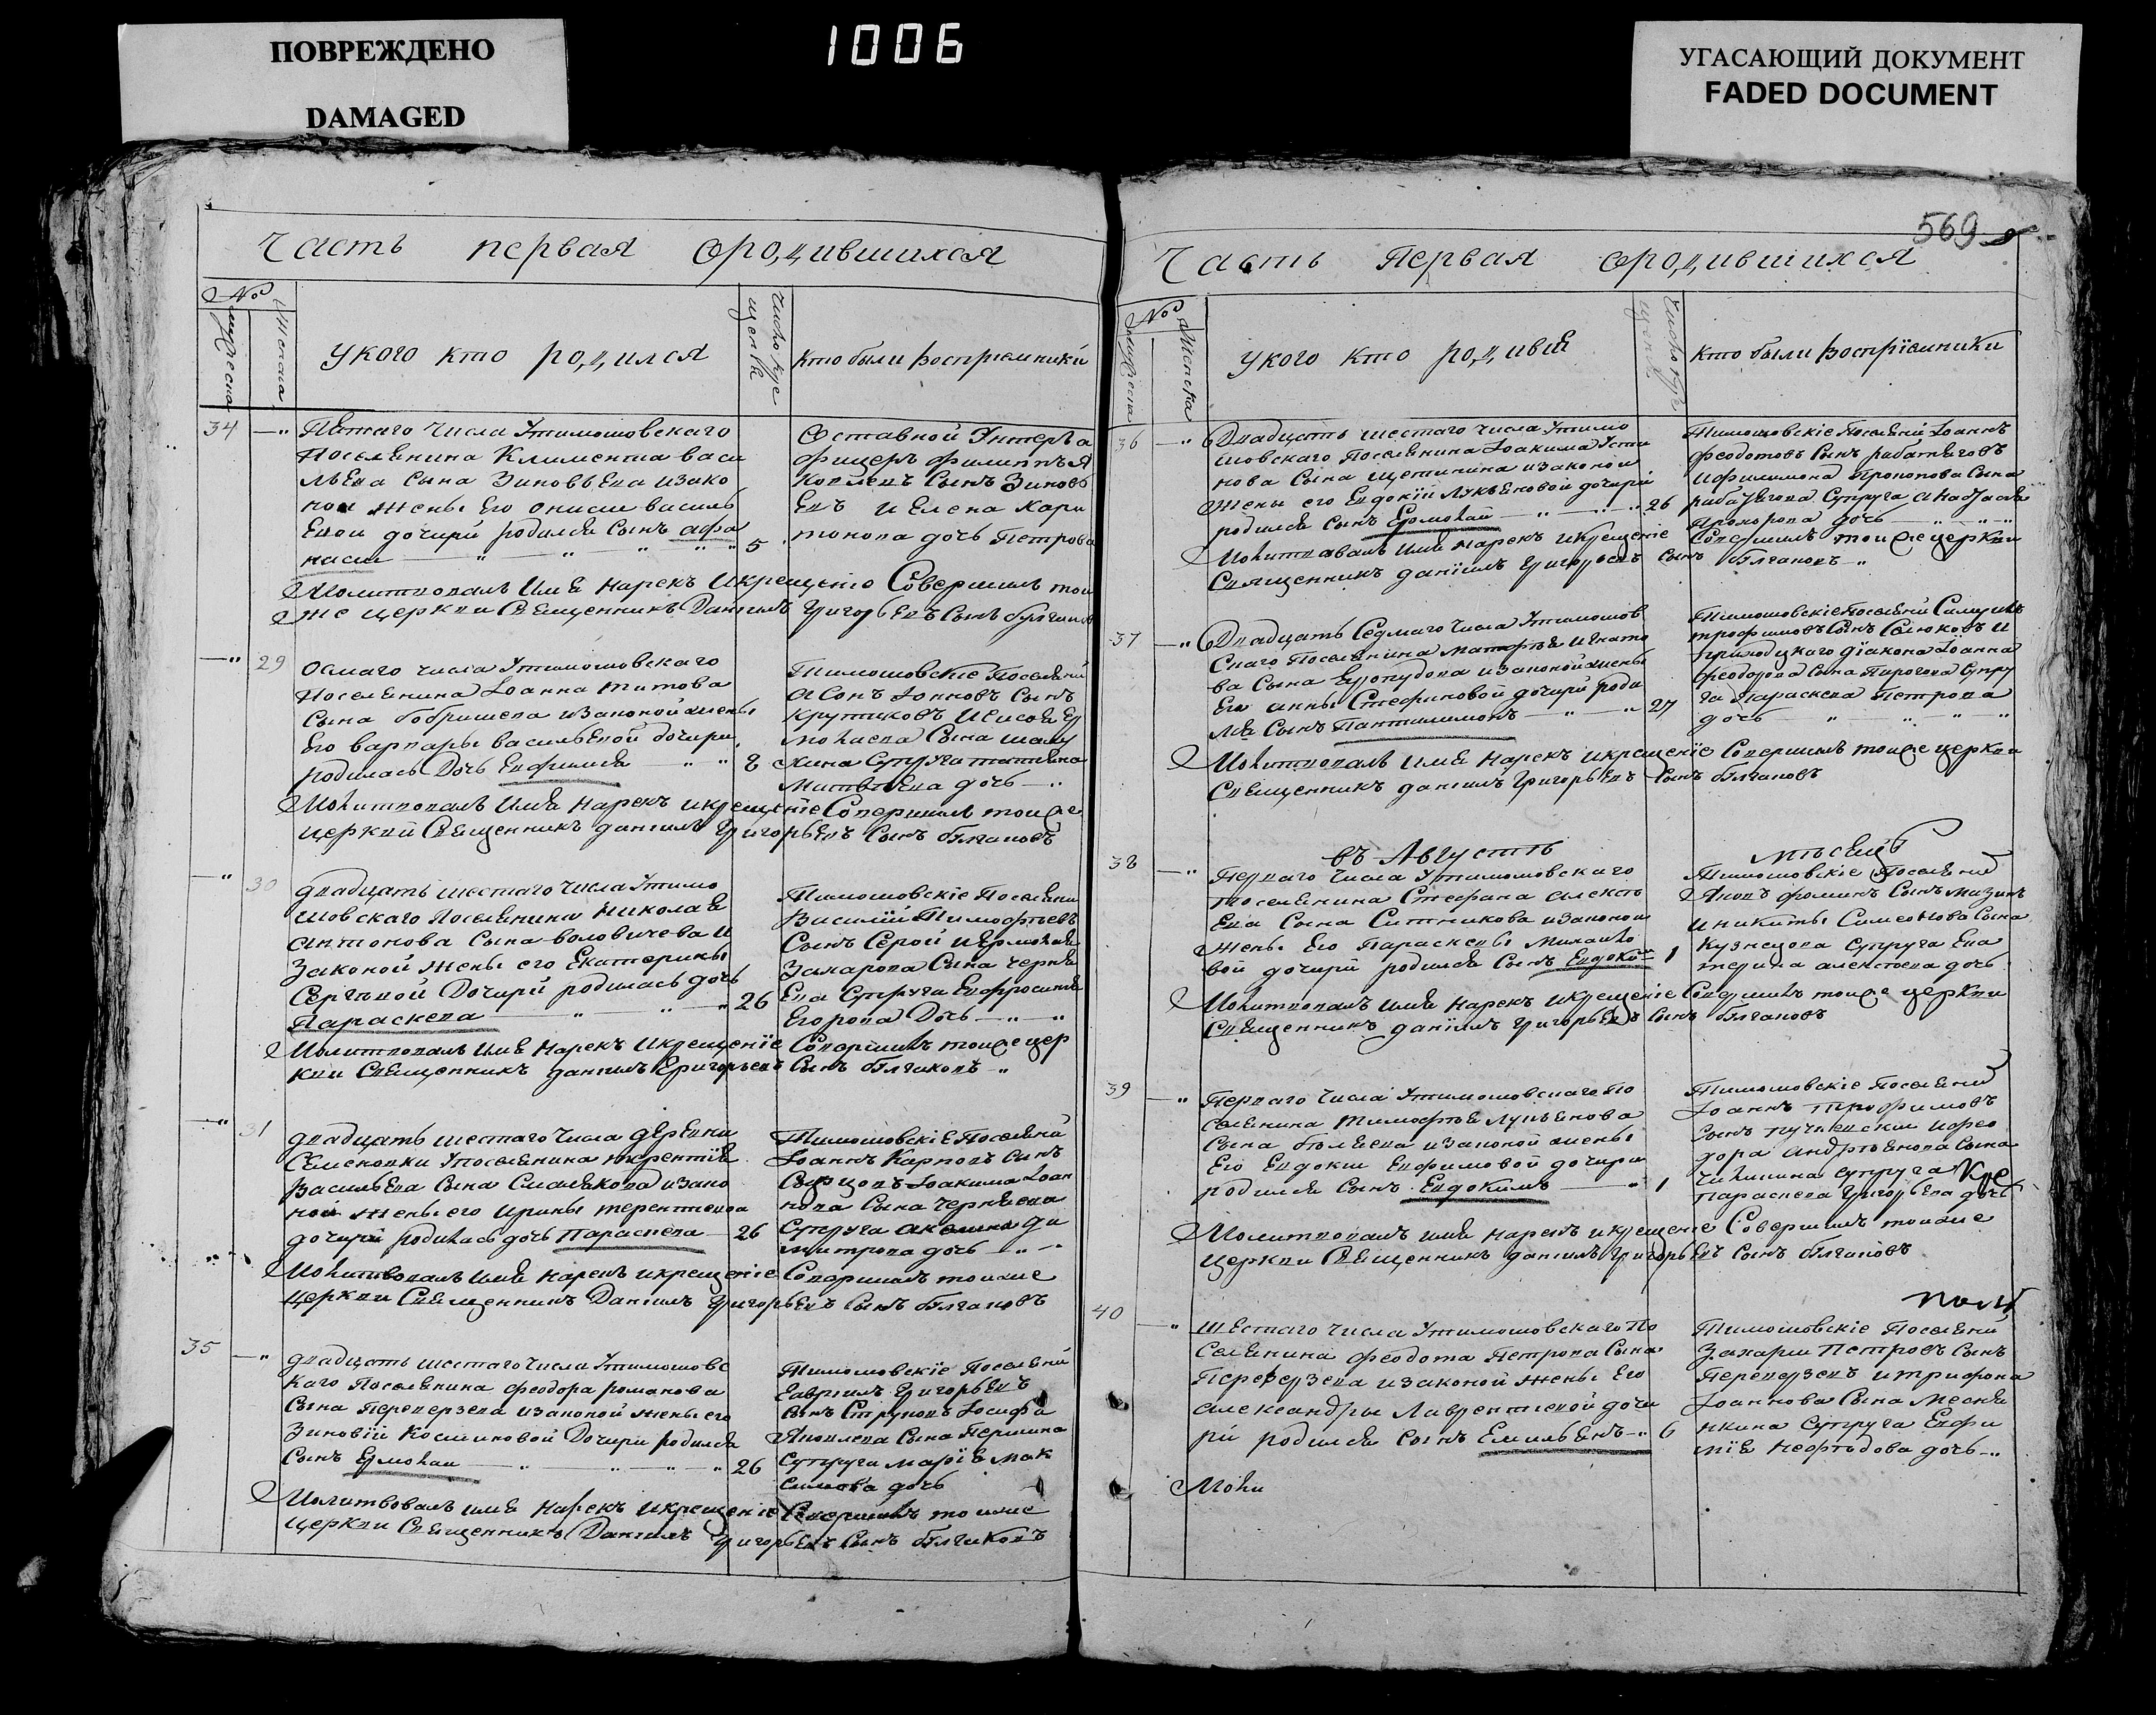 ПОВРЕЖДЕНО
DAMAGED
1006
УГАСАЮЩИЙ ДОКУМЕНТ
FADED DOCUMENT
569
Часть первая ородившихся
№
мужеска
женска
укого кто родился
число кре
щенія
кто были воспріемники
34 Пятаго числа утимошовскаго
Поселянина Климента васи
льева сына Зиновьева изако
ной жены его описіи василь
евои дочири родился сынъ афа
насіи 5
Отставной Унтеръ о
фицеръ филиппъ я
ковлевъ сынъ Зиновь
евъ и Елена Хари
тонова дочь Петрова
Молитвовалъ имя нарекъ икрещеніе Совершилъ тои
же церкви Священникъ Даніилъ григорьевъ сынъ булгаковъ
29 Осмаго числа утимошовскаго
Поселянина Іоанна титова
сына бобришева изаконой жены
Его варвары васильевой дочири
родилась Дочь Евфимія 8
Тимошовскіе Поселяни
Асонъ Іоановъ сынъ
крутиковъ и Ер
молаева сына
кина супруга татіяна
Матвѣева дочь
Молитвовалъ имя нарекъ икрещеніе Совершилъ тоиже
церкви Священникъ даніилъ григорьевъ сынъ булгаковъ
30 двадцать шестаго числа утимо
шовскаго поселянина Николая
антонова сына воловичева и
Законой жены его Екатерины
Сергѣевой Дочири родилась дочь
Параскева 26
Тимошовскіе поселяни
Василій Тимофѣевъ
Сынъ Серой и Ермолая
Захарова Сына черня
Ева супруга Евфросинія
Егорова Дочь
Молитвовалъ имя нарекъ икрещеніе Совершилъ тоиже цер
кви священникъ даніилъ григорьевъ сынъ булгаковъ
31 двадцать шестаго числа деревни
Семеновки упоселянина терентія
Васильева сына Смалякова изако
ной жены его ирины терентевои
дочири родилась дочь Параскева 26
Тимошовскіе Поселяни
Іоанъ Карповъ сынъ
Іоакима Іоан
нова сына чернѣева
супруга акелина ди
митрова дочь
Молитвовалъ имя нарекъ икрещеніе Совершилъ тоиже
церкви Священникъ Даніилъ григорьевъ сынъ булгаковъ
35 двадцать шестаго числа утимошовс
каго Поселянина феодора романова
сына Переверзева изаконой жены его
Зиновіи Косминовой Дочири родился
сынъ Ермолаи 26
Тимошовскіе Поселяни
Гавріилъ григорьевъ
сынъ Струковъ Іосифа
Яковлева сына Першина
супруга марія мак
симова дочь
Молитвовалъ имя нарекъ икрещеніе Совершилъ тоиже
церкви Священникъ Даніилъ григорьевъ сынъ булгаковъ
Часть Первая ородившихся
№
мужеска
женска
укого кто родився
число кре
щенія
кто были воспріемники
36 Двадцать шестаго числа утимо
шовскаго поселянина Іоакима Усти
нова сына щетинина изаконои
жены его Евдокіи Лукьяновой дочири
родился сынъ Ермолай 26
Тимошовскіе Поселяни Іоаннъ
феодотовъ сынъ работяговъ
ифилимона Прокопова сына
работягова Супруга Анастасія
Прохорова дочь
Молитвовалъ имя нарекъ икрещеніе Совершилъ тоиже церкви
Священникъ даніилъ григорьевъ сынъ булгаковъ
37 Двадцать Седмаго числа утимошов
скаго поселянина Матфея игнато
ва сына изаконой жены
Его анны Стефановой дочири роди
лся сынъ Пантилимонъ 27
Тимошовскіе поселяни
трофимовъ сынъ и
приходскаго діакона Іоанна
феодорова сына Пирогова супру
га Параскева Петрова
дочь
Молитвовалъ имя нарекъ икрещеніе Совершилъ тоиже церкви
Священникъ даніилъ григорьевъ сынъ булгаковъ
въ Августѣ мѣсяцѣ
38 Перваго числа утимошовскаго
поселянина Стефана алексѣ
ева сына Ситникова изаконои
жены его Параскевы Михаило
вой дочири родился сынъ Евдокимъ 1
Тимошовскіе Поселяни
Яковъ фоминъ сынъ мазинъ
иникиты Симеонова сына
кузнецова супруга Ека
терина алексѣева дочь
Молитвовалъ имя нарекъ икрещеніе Совершилъ тоиже церкви
Священникъ даніилъ григорьевъ сынъ булгаковъ
39 Перваго числа утимошовскаго по
селянина тимофѣя лукьянова
сына бѣляева изаконой жены
Его Евдокіи Евфимовой дочири
родился сынъ Евдокимъ 1
Тимошовскіе поселяни
Іоаннъ трофимовъ
сынъ ифео
дора андрѣянова сына
чилинина супруга
параскева григорьева дочь
Молитвовалъ имя нарекъ икрещеніе Совершилъ тоиже
церкви Священникъ даніилъ григорьевъ сынъ булгаковъ
40 шестаго числа утимошовскаго по
селянина феодота петрова сына
Переверзева изаконой жены его
александры Лаврентіевой дочи
ри родился сынъ Емильянъ 6
Тимошовскіе Поселяни
Захаріи Петровъ сынъ
Переверзевъ итрифона
Іоаннова сына Месня
нкина супруга Евфи
мія Нефѣдова дочь
Моли